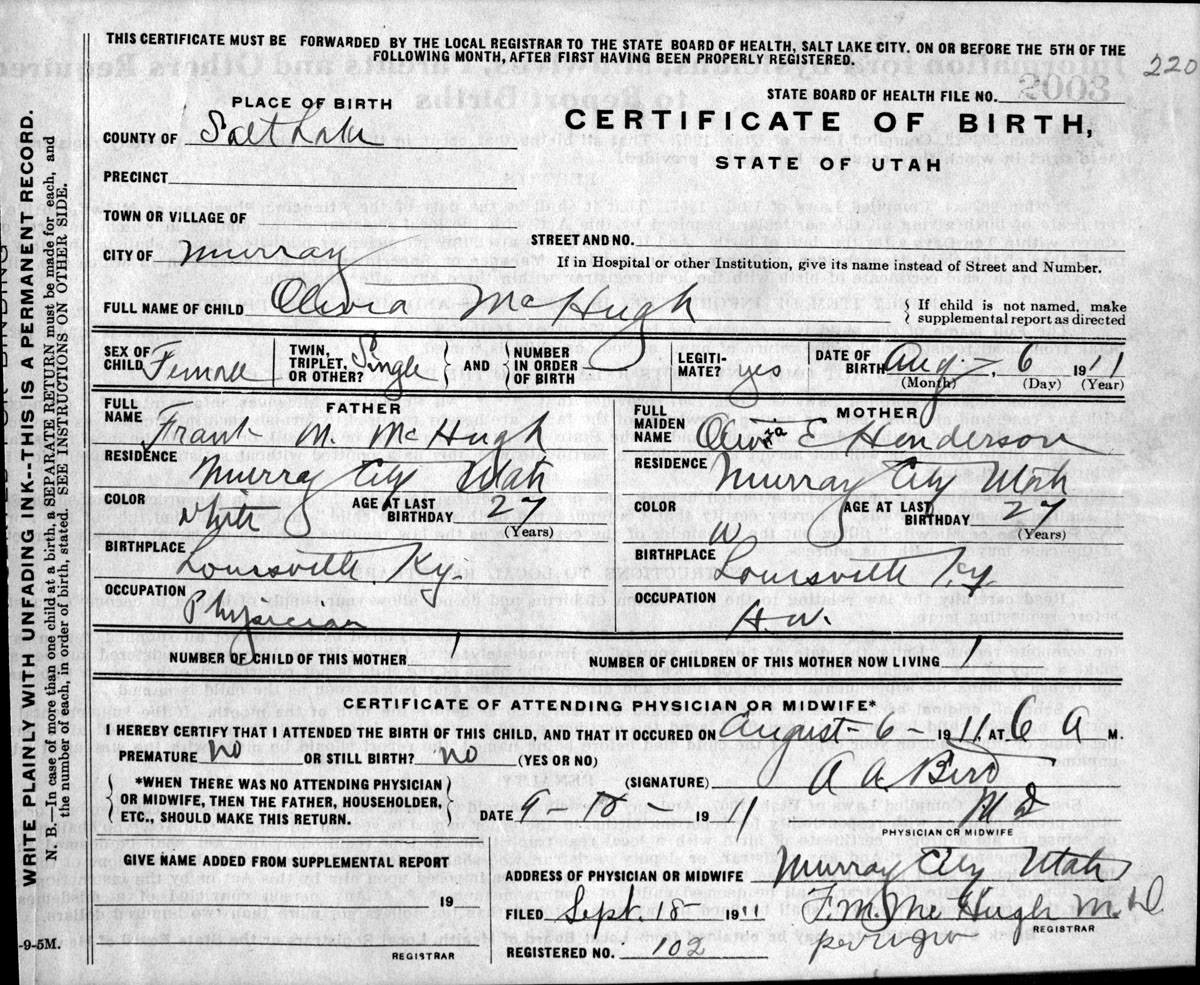 THIS CERTIFICATE MUST BE FORWARDED BY THE LOCAL REGISTRAR TO THE STATE BOARD OF HEALTH, SALT LAKE CITY. ON OR BEFORE THE 5TH OF THE
FOLLOWING MONTH, AFTER FIRST HAVING BEEN PROPERLY REGISTERED.
220
PLACE OF BIRTH
STATE BOARD OF HEALTH FILE NO.
COUNTY OF Salt Lake
CERTIFICATE OF BIRTH,
STATE OF UTAH
PRECINCT
TOWN OR VILLAGE OF
STREET AND NO.
CITY OF Murray
If in Hospital or other Institution, give its name instead of Street and Number.
FULL NAME OF CHILD Olivia McHugh
child is not named, make
supplemental report as directed
SEX OF CHILD Female
TWIN, TRIPLET, OR OTHER? Single
AND
NUMBER IN ORDER OF BIRTH
LEGITIMATE? yes
DATE OF BIRTH Aug - 6 1911
(Month) (Day) (Year)
FATHER
FULL NAME Frank M. McHugh
RESIDENCE Murray City Utah
COLOR White
AGE AT LAST BIRTHDAY 27
(Years)
BIRTHPLACE Louisville Ky.
OCCUPATION Physician
MOTHER
FULL MAIDEN NAME Olivia E Henderson
RESIDENCE Murray City Utah
COLOR W
AGE AT LAST BIRTHDAY 27
(Years)
BIRTHPLACE Louisville Ky.
OCCUPATION H.W.
NUMBER OF CHILD OF THIS MOTHER 1
NUMBER OF CHILDREN OF THIS MOTHER NOW LIVING 1
CERTIFICATE OF ATTENDING PHYSICIAN OR MIDWIFE*
I HEREBY CERTIFY THAT I ATTENDED THE BIRTH OF THIS CHILD, AND THAT IT OCCURED ON August - 6 - 1911, AT 6 A M.
PREMATURE No OR STILL BIRTH? No (YES OR NO)
*WHEN THERE WAS NO ATTENDING PHYSICIAN
OR MIDWIFE, THEN THE FATHER, HOUSEHOLDER,
ETC., SHOULD MAKE THIS RETURN.
(SIGNATURE) A A Bird
M D
DATE 9 - 1911
PHYSICIAN OR MIDWIFE
GIVE NAME ADDED FROM SUPPLEMENTAL REPORT
19
REGISTRAR
ADDRESS OF PHYSICIAN OR MIDWIFE Murray City Utah
FILED Sept. 18 - 1911 F. M. McHugh M.D
REGISTRAR
REGISTERED NO. 102
WRITE PLAINLY WITH UNFADING INK--THIS IS A PERMANENT RECORD.
N. B.—In case of more than one child at a birth, a SEPARATE RETURN must be made for each, and
the number of each, in order of birth, stated. SEE INSTRUCTIONS ON OTHER SIDE.
-9-5M.